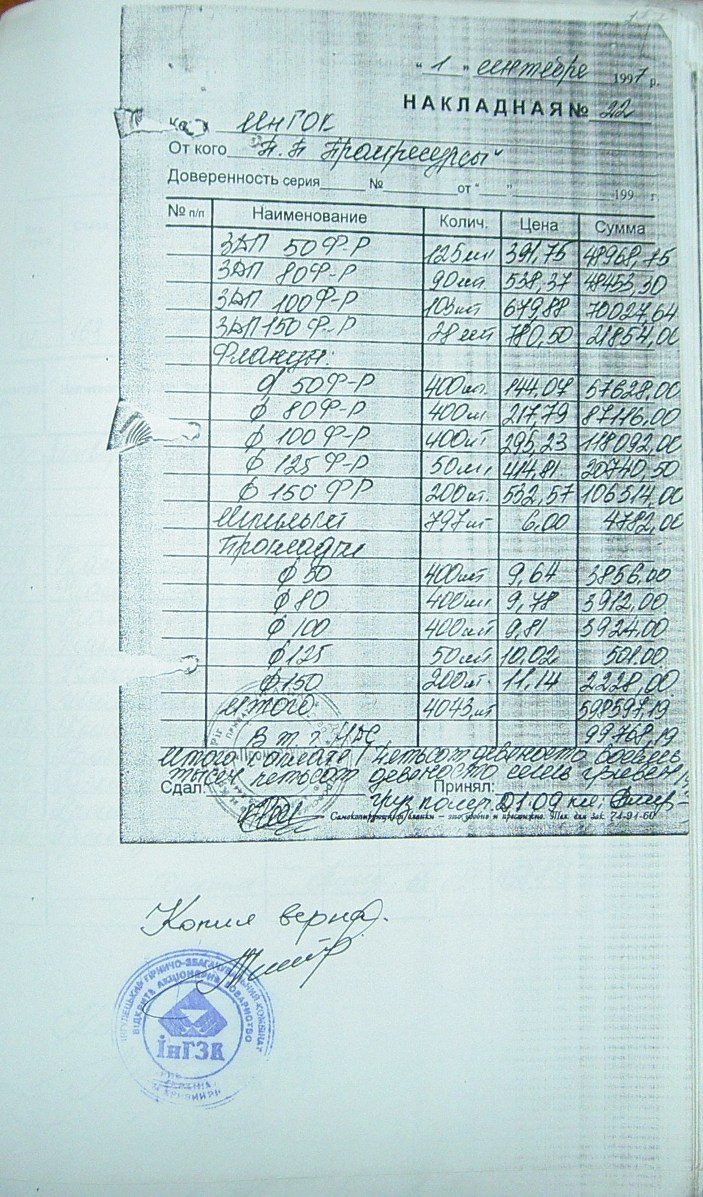 "1" сентября 1997 г.
НАКЛАДНАЯ № 22
Кому ИнГОК
От кого П.П Промресурсы"
Доверенность серия № от " " 199 г.
№ п/п Наименование Колич. Цена Сумма
ЗАП 50 Ф-Р 125шт 391,75 48968,75
ЗАП 80Ф-Р 90шт 538,37 48453,30
ЗАП 100Ф-Р 103шт 679,88 70027,64
ЗАП 150 Ф-Р 28шт 780,50 21854,00
Фланцы:
ф 50Ф-Р 400шт. 144,07 57628,00
ф 80Ф-Р 400шт 217,79 87116,00
ф 100 Ф-Р 400шт 295,23 118092,00
ф 125 Ф-Р 50шт 414,81 20740,50
ф 150 ФР 200шт. 532,57 106514,00
Шпильки 797шт 6,00 4782,00
Прокладки
ф 50 400шт 9,64 3856,00
ф 80 400шт 9,78 3912,00
ф 100 400шт 9,81 3924,00
ф 125 50шт 10,02 501,00
ф 150 200шт. 11,14 2228,00
Итого: 4043шт 598597,19
В т.ч НДС 99768,19
Итого к оплате: Пятьсот девяносто восемь
тысяч пятьсот девяносто семь гривен
Сдал: Принял:
груз получ. 01.09
Самокопирующиеся бланки — это удобно и престижно. Тел. для зак. 74-91-60
Копия верна.
ІНГУЛЕЦЬКИЙ ГІРНИЧО-ЗБАГАЧУВАЛЬНИЙ КОМБІНАТ
ВІДКРИТЕ АКЦІОНЕРНЕ ТОВАРИСТВО
ІнГЗК
УКРАЇНА